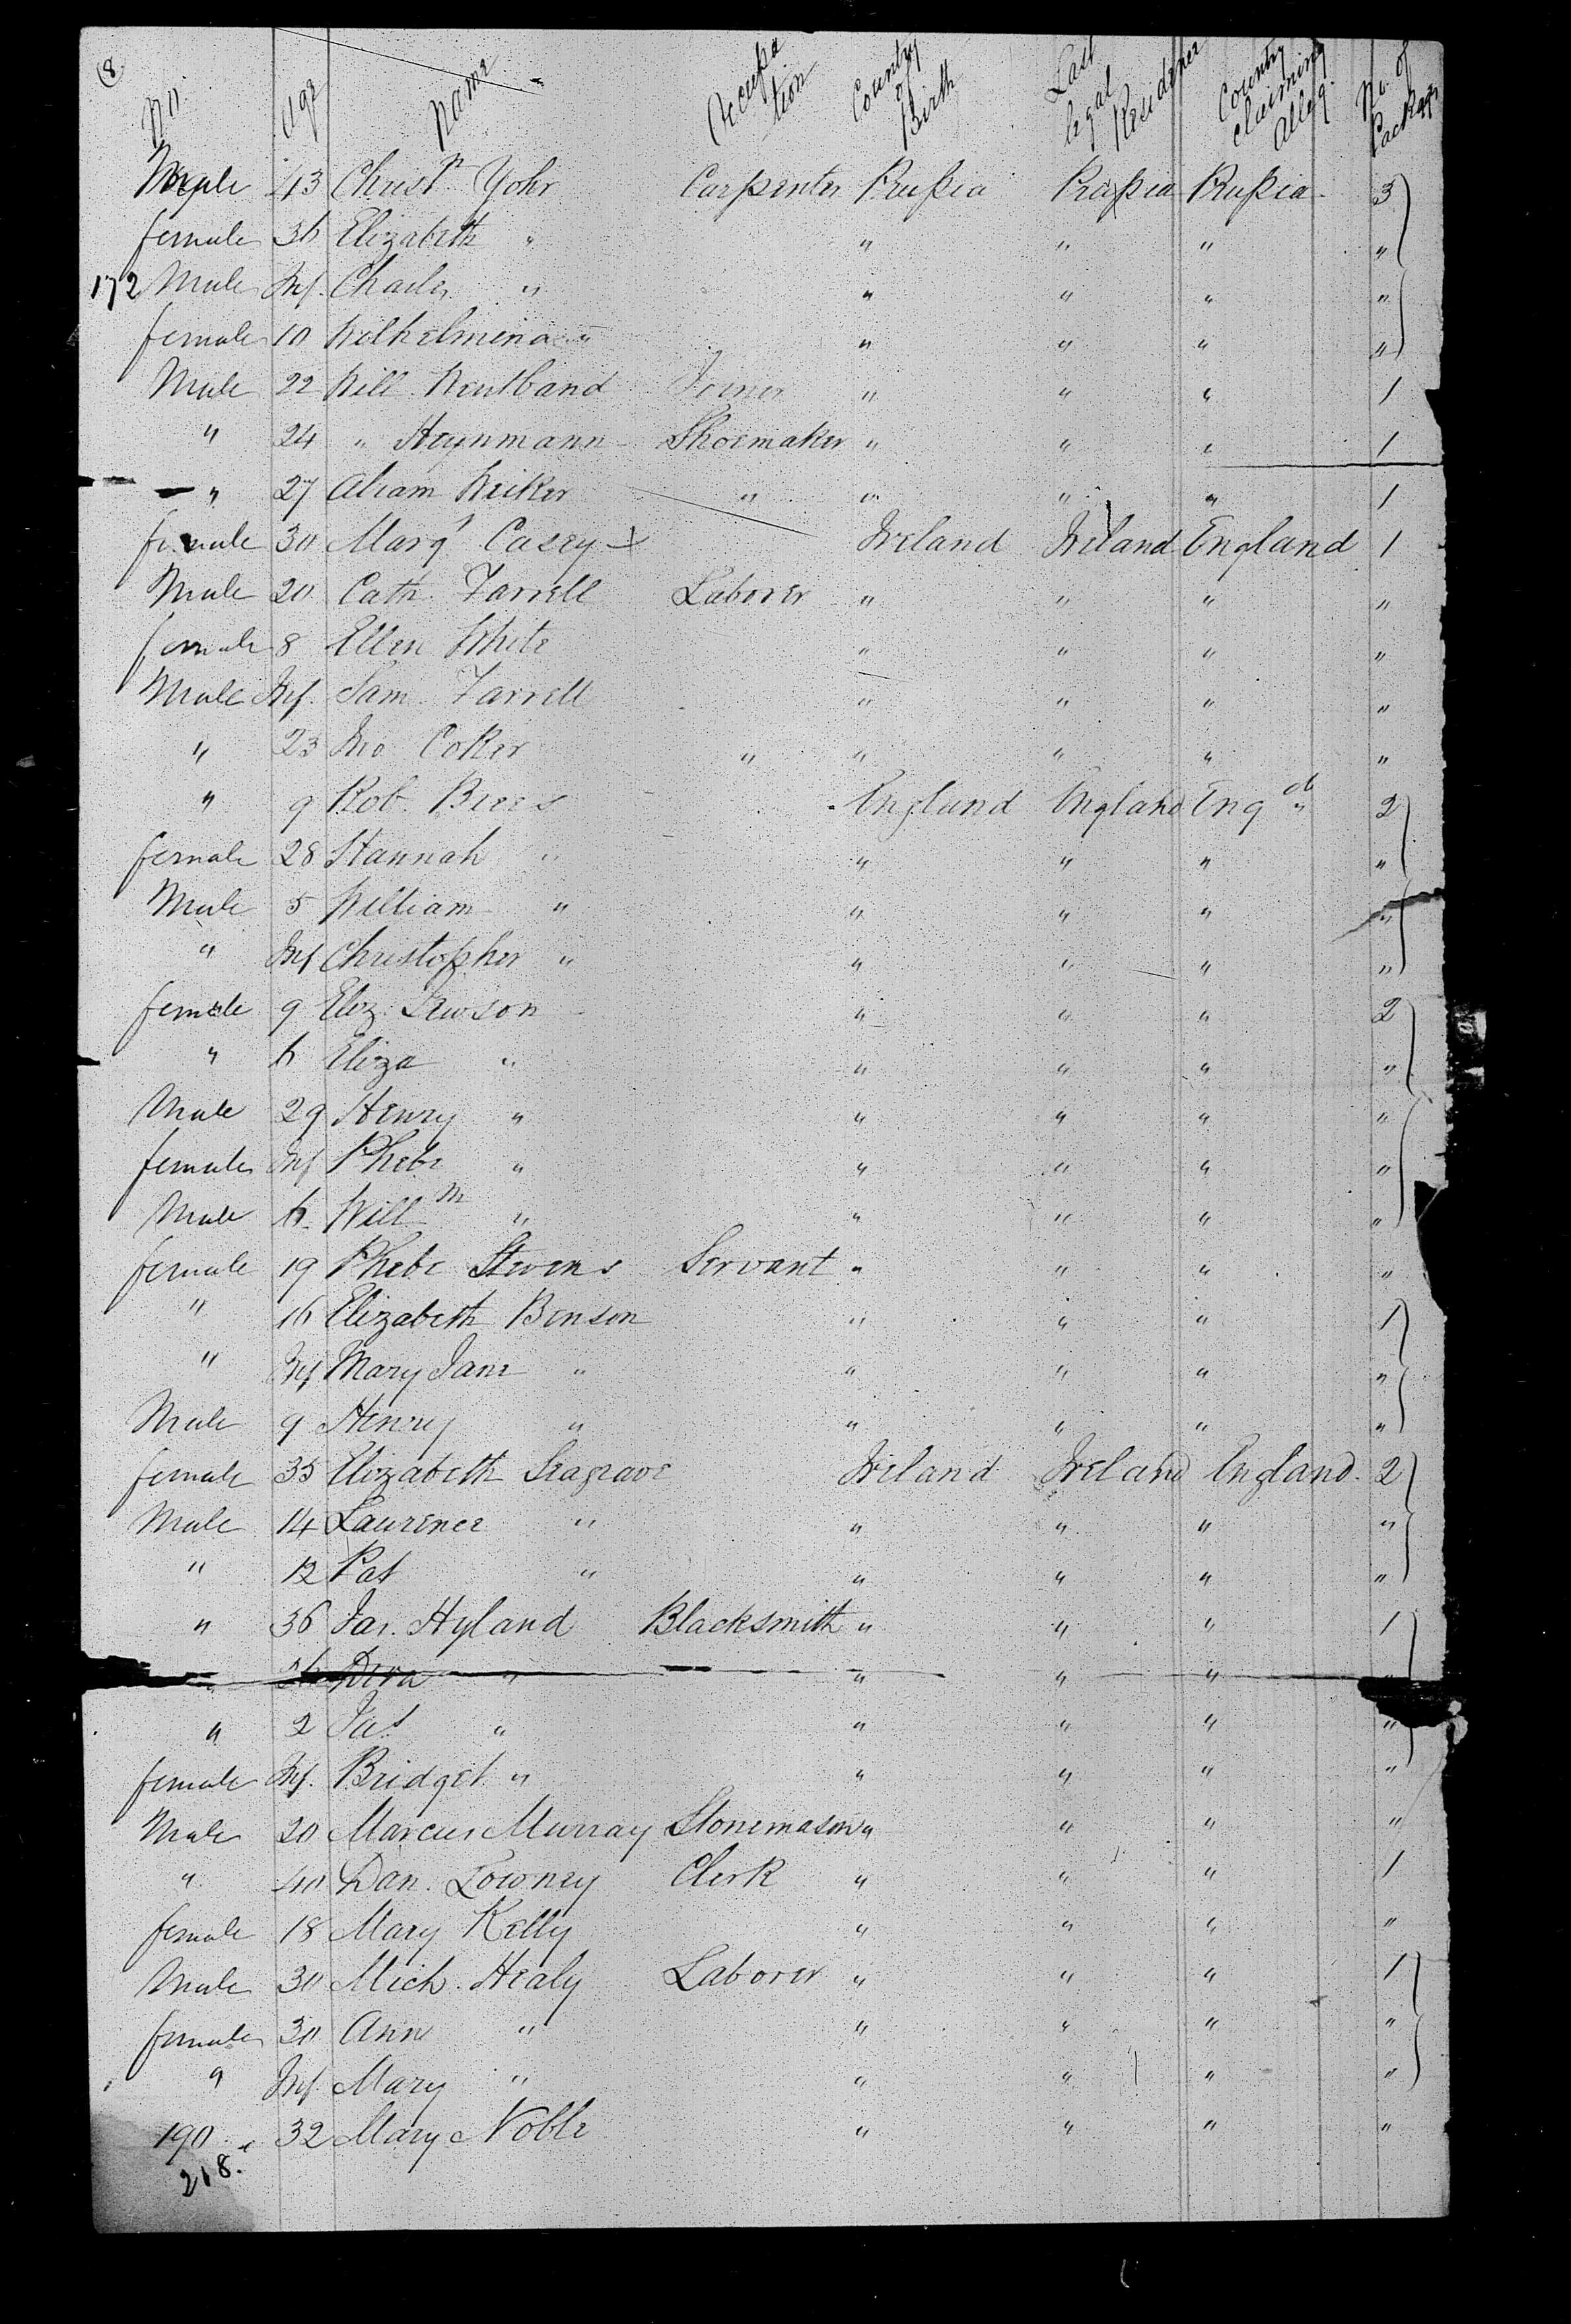 8
No. Age Name Occupation Country of Birth Last legal Residence Country claiming Alleg. No. of Packages
Male 43 Christn Yohr Carpenter Prussia Prussia Prussia 3
female 36 Elizabeth " " " " "
172 Male Inf. Charles " " " " "
female 10 Wilhelmina " " " " "
Male 22 Will Wentband Joiner " " " 1
" 24 " Heynmann Shoemaker " " " 1
" 27 Abram Weiker " " " " 1
female 30 Margt Casey Ireland Ireland England 1
Male 20 Cath. Farrell Laborer " " " "
female 8 Ellen White " " " "
Male Inf. Sam Farrell " " " "
" 23 Jno Coker " " " " "
" 9 Rob. Brees England England Eng d 2
female 28 Hannah " " " " "
Male 5 William " " " " "
" Inf Christopher " " " " "
female 9 Eliz. Lawson " " " 2
" 6 Eliza " " " " "
Male 29 Henry " " " " "
female Inf Phebe " " " " "
Male 6 Willm " " " " "
female 19 Phebe Stevens Servant " " " "
" 16 Elizabeth Benson " " " 1
" Inf Mary Jane " " " " "
Male 9 Henry " " " " "
female 35 Elizabeth Seagrave Ireland Ireland England 2
Male 14 Laurence " " " " "
" 12 Pat " " " " "
" 36 Jas. Hyland Blacksmith " " " 1
" 36 " " " " "
" 2 Jas " " " " "
female Inf. Bridget " " " " "
Male 20 Marcus Murray Stonemason " " " "
" 40 Dan. Lowney Clerk " " " 1
female 18 Mary Kelly " " " "
Male 30 Mich. Healy Laborer " " " 1
female 30 Ann " " " " "
" Inf Mary " " " " "
190 32 Mary Noble " " " "
218.